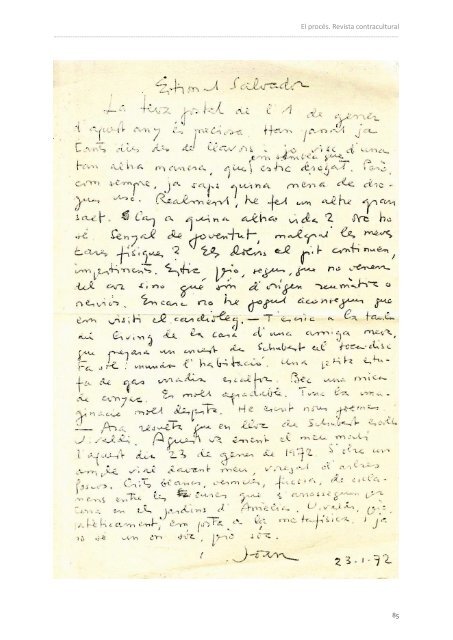 El procés. Revista contracultural
Estimat Salvador
La teva postal de l'1 de gener
d'aquest any és preciosa. Han passat ja
tants dies des de llavors i jo visc d'una
em sembla que
tan altra manera, que estic drogat. Però,
com sempre, ja saps quina mena de dro-
gues uso. Realment, he fet un altre gran
salt. Cap a quina altra vida? No ho
sé. Senyal de joventut, malgrat les meves
tares físiques? Els dolors al pit continuen,
impertinents. Estic segur, que no venen
del cor sino que són d'origen reumàtic o
nerviós. Encara no he pogut aconseguir que
em visiti el cardiòleg. — T'escric a la taula
del living de la casa d'una amiga meva,
que prepara un concert de Schubert al tocadiscs
l'habitació. Una petita estu-
fa de gas irradia escalfor. Bec una mica
de conyac. És molt agradable. Tinc la ima-
ginació molt desperta. He escrit nous poemes.
— Ara resulta que en lloc de Schubert escolto
Vivaldi. Aquest és el meu matí
d'aquest dia 23 de gener de 1972. S'obre un
ample vial davant meu, vorejat d'arbres
foscos. Crits blancs, vermells,
entre les que s'arrosseguen per
terra en els jardins d'Amèlia. Vivaldi,
patèticament, em porta a la metafísica. I ja
no sé on sóc, però sóc.
Joan
23-1-72
85